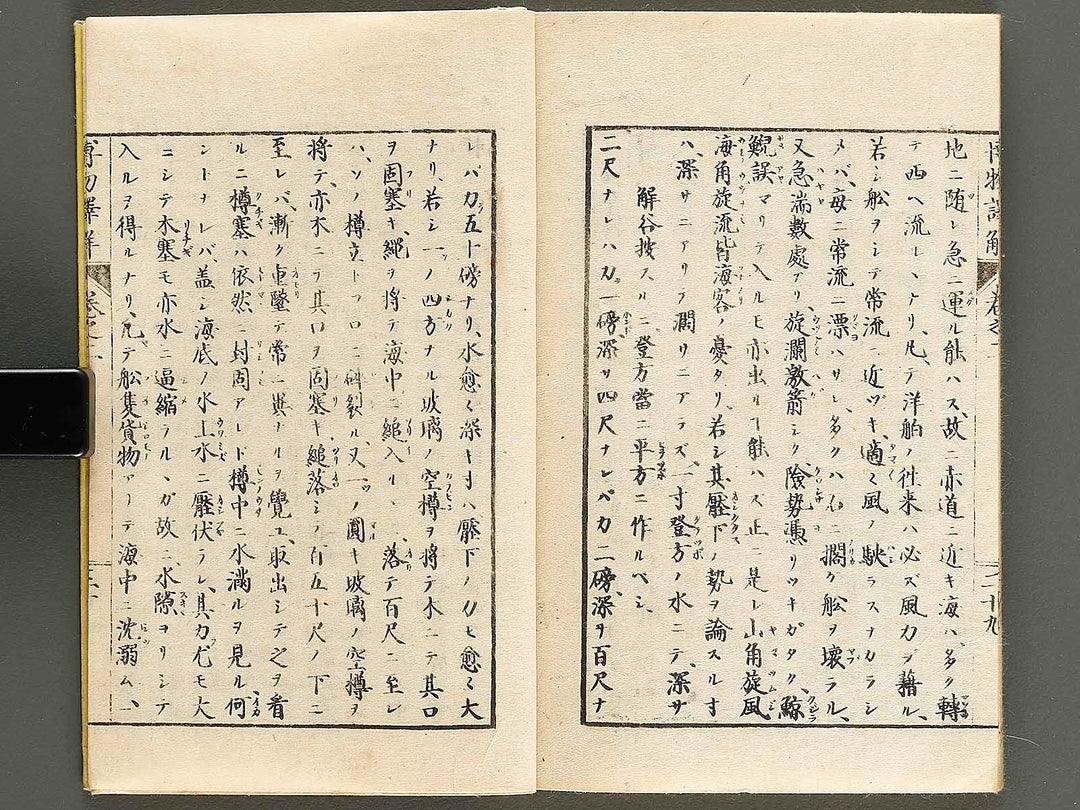 地ニ随レ急ニ運ル能ハス、故ニ赤道ニ近キ海ハ、多ク轉
テ西ヘ流レヽナリ、凡ソテ洋舶ノ往来ハ必ズ風力ヲ藉ル、
若シ舩ヲシテ常流ニ近ヅキ、適〻風ノ駛ラスナカラシ
メバ、毎ニ常流ニ漂ハサレ、多クハ石ニ擱ケ舩ヲ壊ラル、
又急湍數處アリ、旋瀾激箭シク險勢憑リツキガタク、鯨
鯢誤マリテ入ルモ亦出ルヿ能ハズ止ニ是レ山角旋風
海角旋流皆海客ノ憂タリ、若シ其壓下ノ勢ヲ論スル寸
ハ、深サニアリテ濶サニアラズ、一寸登方ノ水ニテ、深サ
解谷按スルニ登方當ニ平方ニ作ルベシ
二尺ナレハ力一傍、深サ四尺ナレバ力二傍、深ヲ百尺ナ
レバ力五十傍ナリ、水愈〻深キ寸ハ壓下ノ力ヒ愈〻大
ナリ、若シ一ツノ四方ナル玻璃ノ空樽ヲ将テ木ニテ其口
ヲ固塞キ、繩ヲ将テ海中ニ縋入ルヽニ、落テ百尺ニ至レ
ハ、ソノ樽立トコロニ碎裂ル、又一ツノ圓キ玻璃ノ空樽ヲ
将テ、亦木ニテ其口ヲ固塞キ、縋落シテ百五十尺ノ下ニ
至レバ、漸ク重墜テ常ニ異ナルヲ覺ユ、取出シテ之ヲ看
ルニ樽塞ハ依然ニ封固アレド樽中ニ水満ルヲ見ル、何
シトナレバ、盖シ海底ノ水上水ニ壓伏ラレ、其力尤モ大
ニシテ木塞モ亦水ニ逼縮ラルヽガ故ニ、水隙ヨリシテ
入ルヲ得ルナリ、凡テ舩隻貨物アリテ海中ニ沈溺ム一、
博物譯解
巻之一
二十九